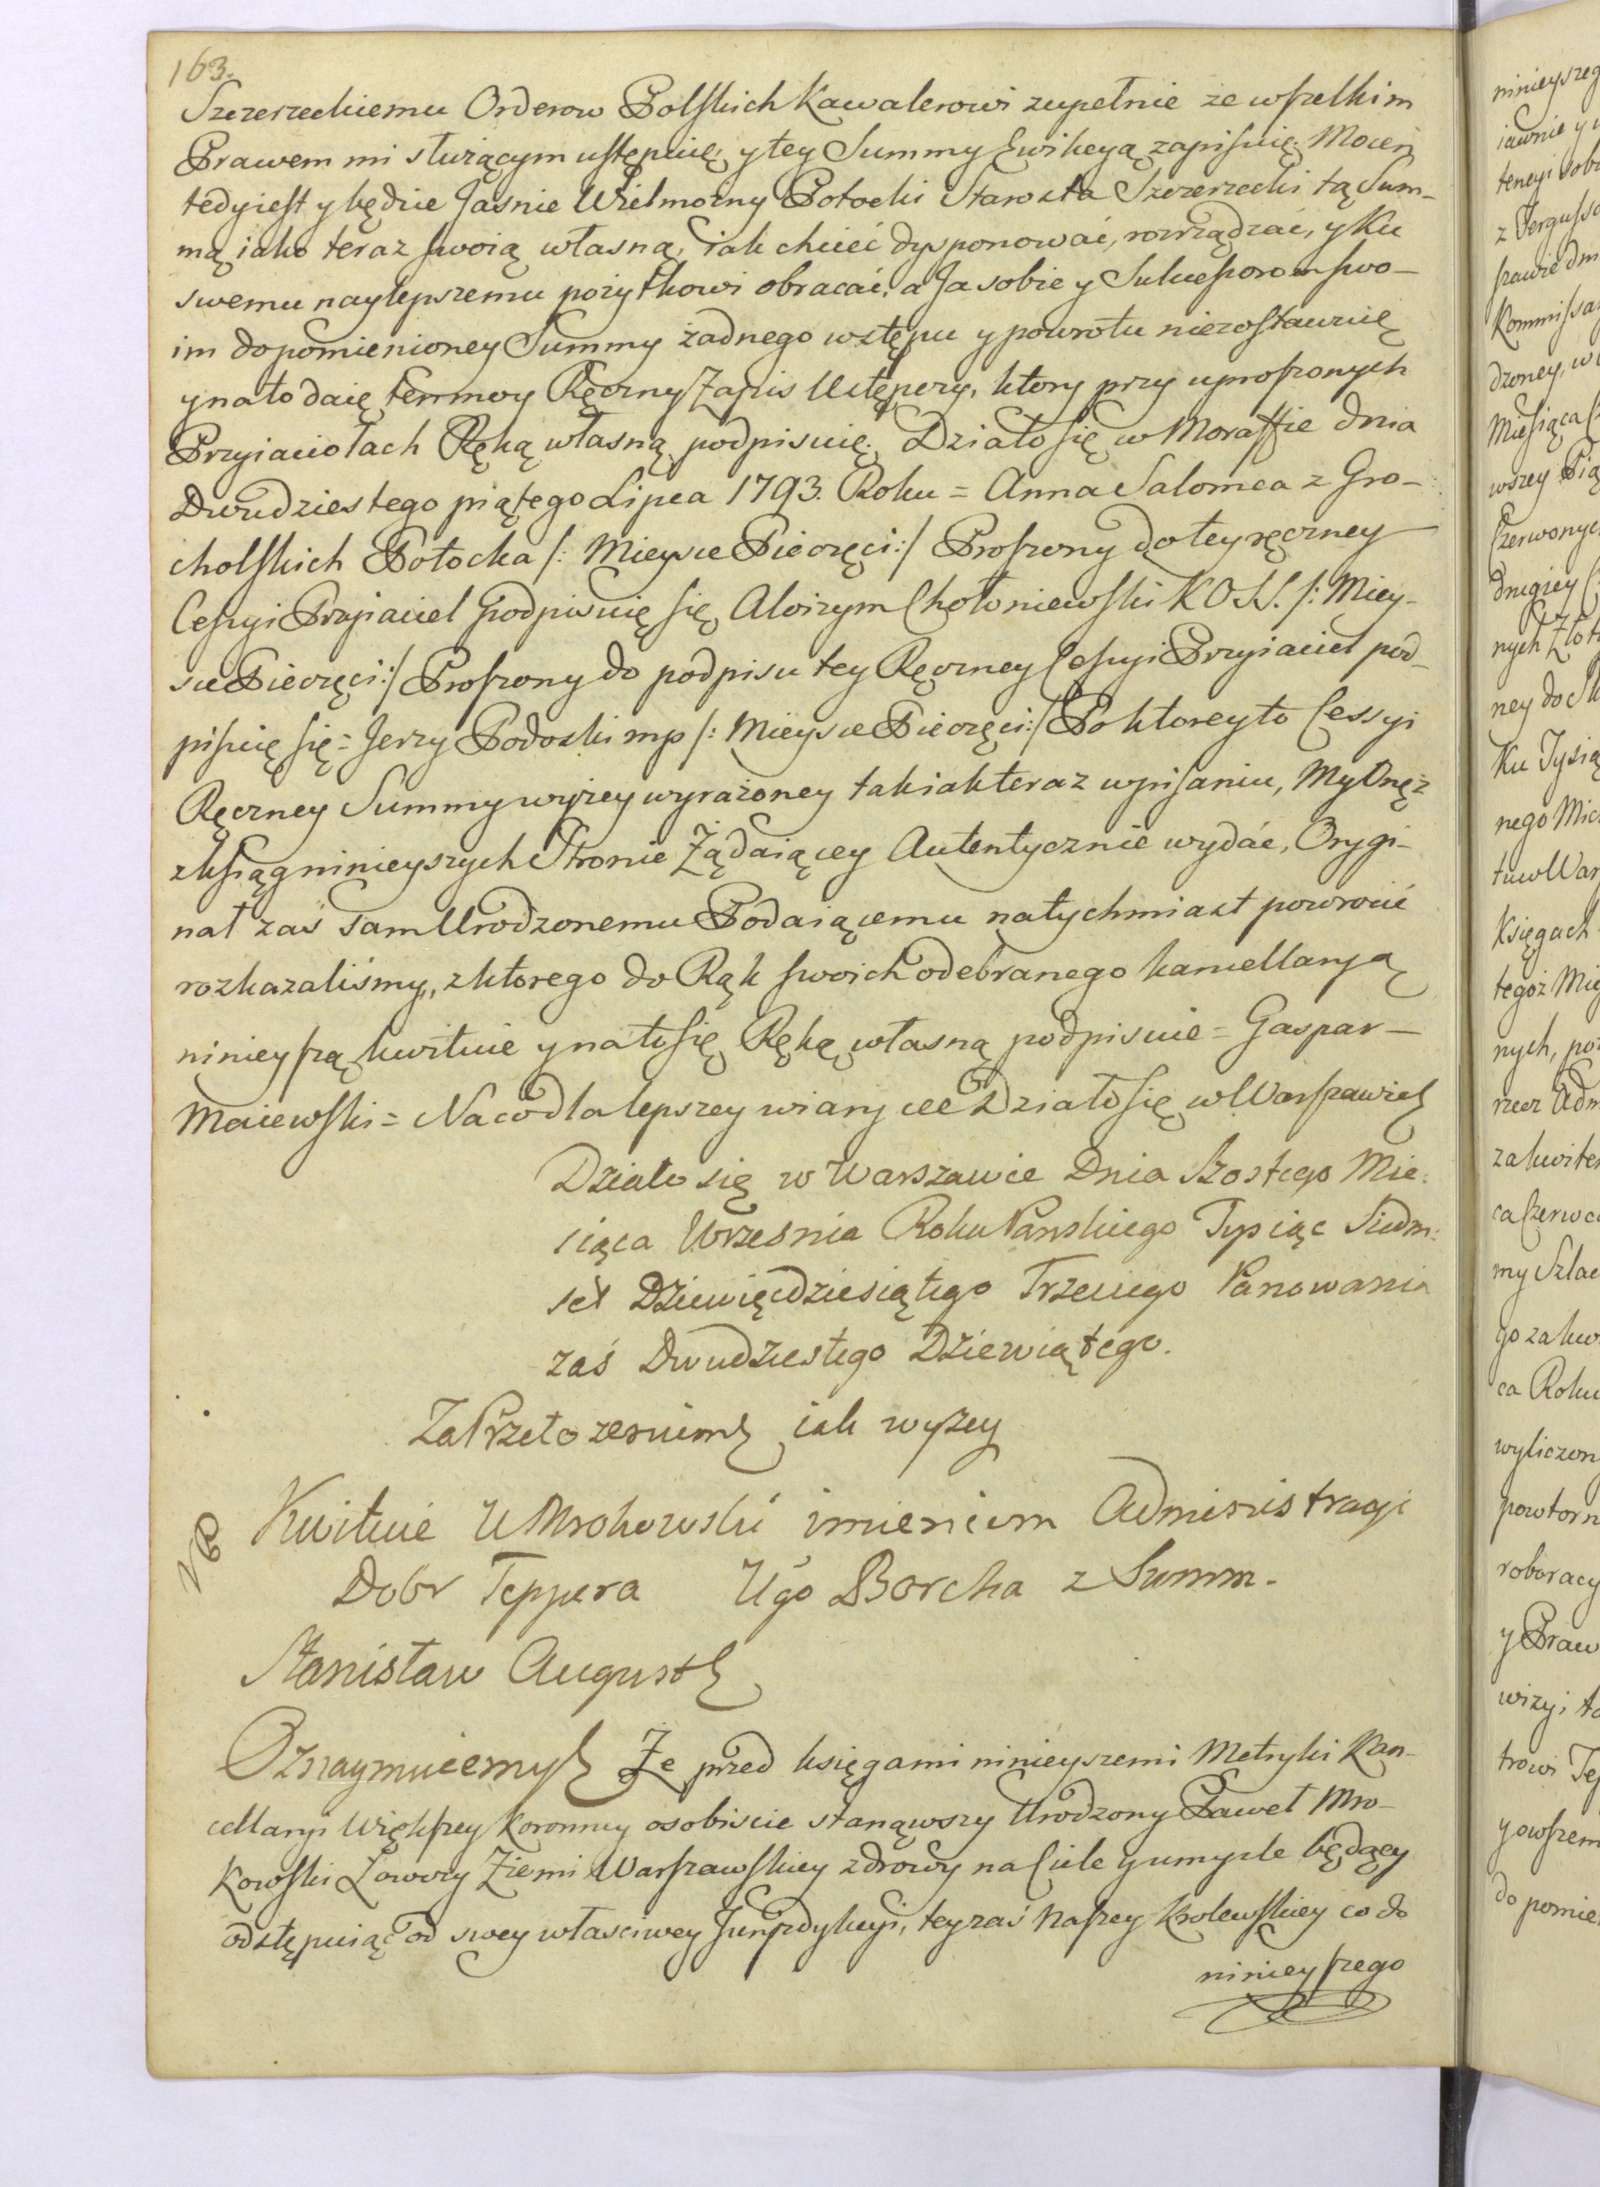 163.
Szczerzeckiemu Orderow Polskich Kawalerowi zupełnie ze wszelkim
Prawem mi służącym ustępuię, y tey Summy Ewikcyą zapisuię. Mocen
tedy iest y będzie Jasnie Wielmożny Potocki Starosta Szczerzecki tą Sum-
mą iako teraz swoią własną, iak chcieć dysponować, rozrządzać, y ku
swemu naylepszemu pożytkowi obracać, a Ja sobie y Sukcessorom swo-
im do pomienioney Summy żadnego wstępu y powrotu niezostawuię
y na to daię ten moy Ręczny Zapis Ustępczy, ktory przy uproszonych
Przyiaciołach Ręką własną podpisuię. Działo się w Moraffie dnia
Dwudziestego piątego Lipca 1793. Roku = Anna Salomea z Gro-
cholskich Potocka /: Mieysce Pieczęci :/ Proszony do tey ręczney
Cessyi Przyiaciel podpisuię się Aloizym Chołoniewski K O S S. /: Miey-
sce Pieczęci :/ Proszony do podpisu tey Ręczney Cessyi Przyiaciel pod-
pisuię się = Jerzy Podoski mp /: Mieysce Pieczęci :/ Po ktorey to Cessyi
Ręczney Summy wyżey wyrażoney tak iak teraz wpisaniu, My Onęż
z Xsiąg ninieyszych Stronie Żądaiącey Autentycznie wydać, Orygi-
nał zaś sam Urodzonemu Podaiącemu natychmiast powrocić
rozkazaliśmy, z ktorego do Rąk swoich odebranego kancellaryą
ninieyszą kwituie y na to się Ręką własną podpisuie = Gaspar
Maiewski = Na co dla lepszey wiary &c Działo się w Warszawie
Działo się w Warszawie Dnia Szostego Mie:
siąca Września Roku Panskiego Tysiąc Siedm:
set Dziewięcdziesiątego Trzeciego Panowania
zaś Dwudziestego Dziewiątego.
Za Przełożeniem iak wyżey
Kwituie U Mrokowski imieniem Administracyi
Dobr Teppera Ugo Borcha z Summ.
Stanisław August
Oznaymuiemy Że przed księgami ninieyszemi Metryki Kan-
cellaryi Większey Koronney osobiscie stanąwszy Urodzony Paweł Mro-
kowski Łowczy Ziemi Warszawskiey zdrowy na Ciele y umysle będący
odstępuiąc od swey własciwey Juryzdykcyi, tey zaś Naszey Krolewskiey co do
ninieyszego